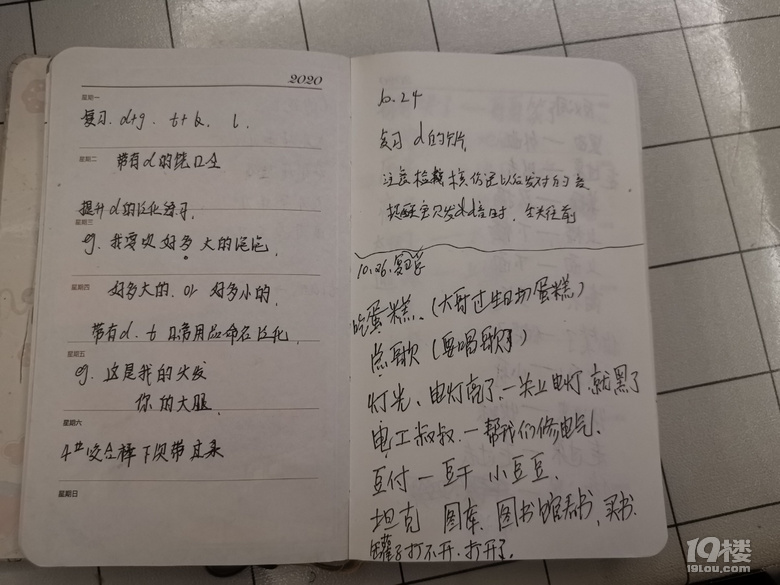 2020
星期一
复习. d+g. t+k. l.
星期二
带有d的绕口令
提升d的泛化练习.
星期三
eg. 我要吹好多大的泡泡.
星期四
好多大的. or 好多小的.
带有d. t 日常用品命名泛化.
星期五
eg. 这是我的头发
你的大腿.
星期六
4#咬合棒下次带过来
星期日
10.24
复习 d的卡片
注意检载核
提醒宝贝发d.d音时. 舌尖往前
10.26.
吃蛋糕、(大哥过生日切蛋糕)
点歌 (要唱歌了)
灯光、电灯亮了. 一关上电灯.就黑了
电工叔叔. 一帮我们修电气.
豆付 一 豆干 小豆豆.
坦克 图库. 图书馆看书, 买书.
罐子打不开. 打开了.
19楼
19lou.com